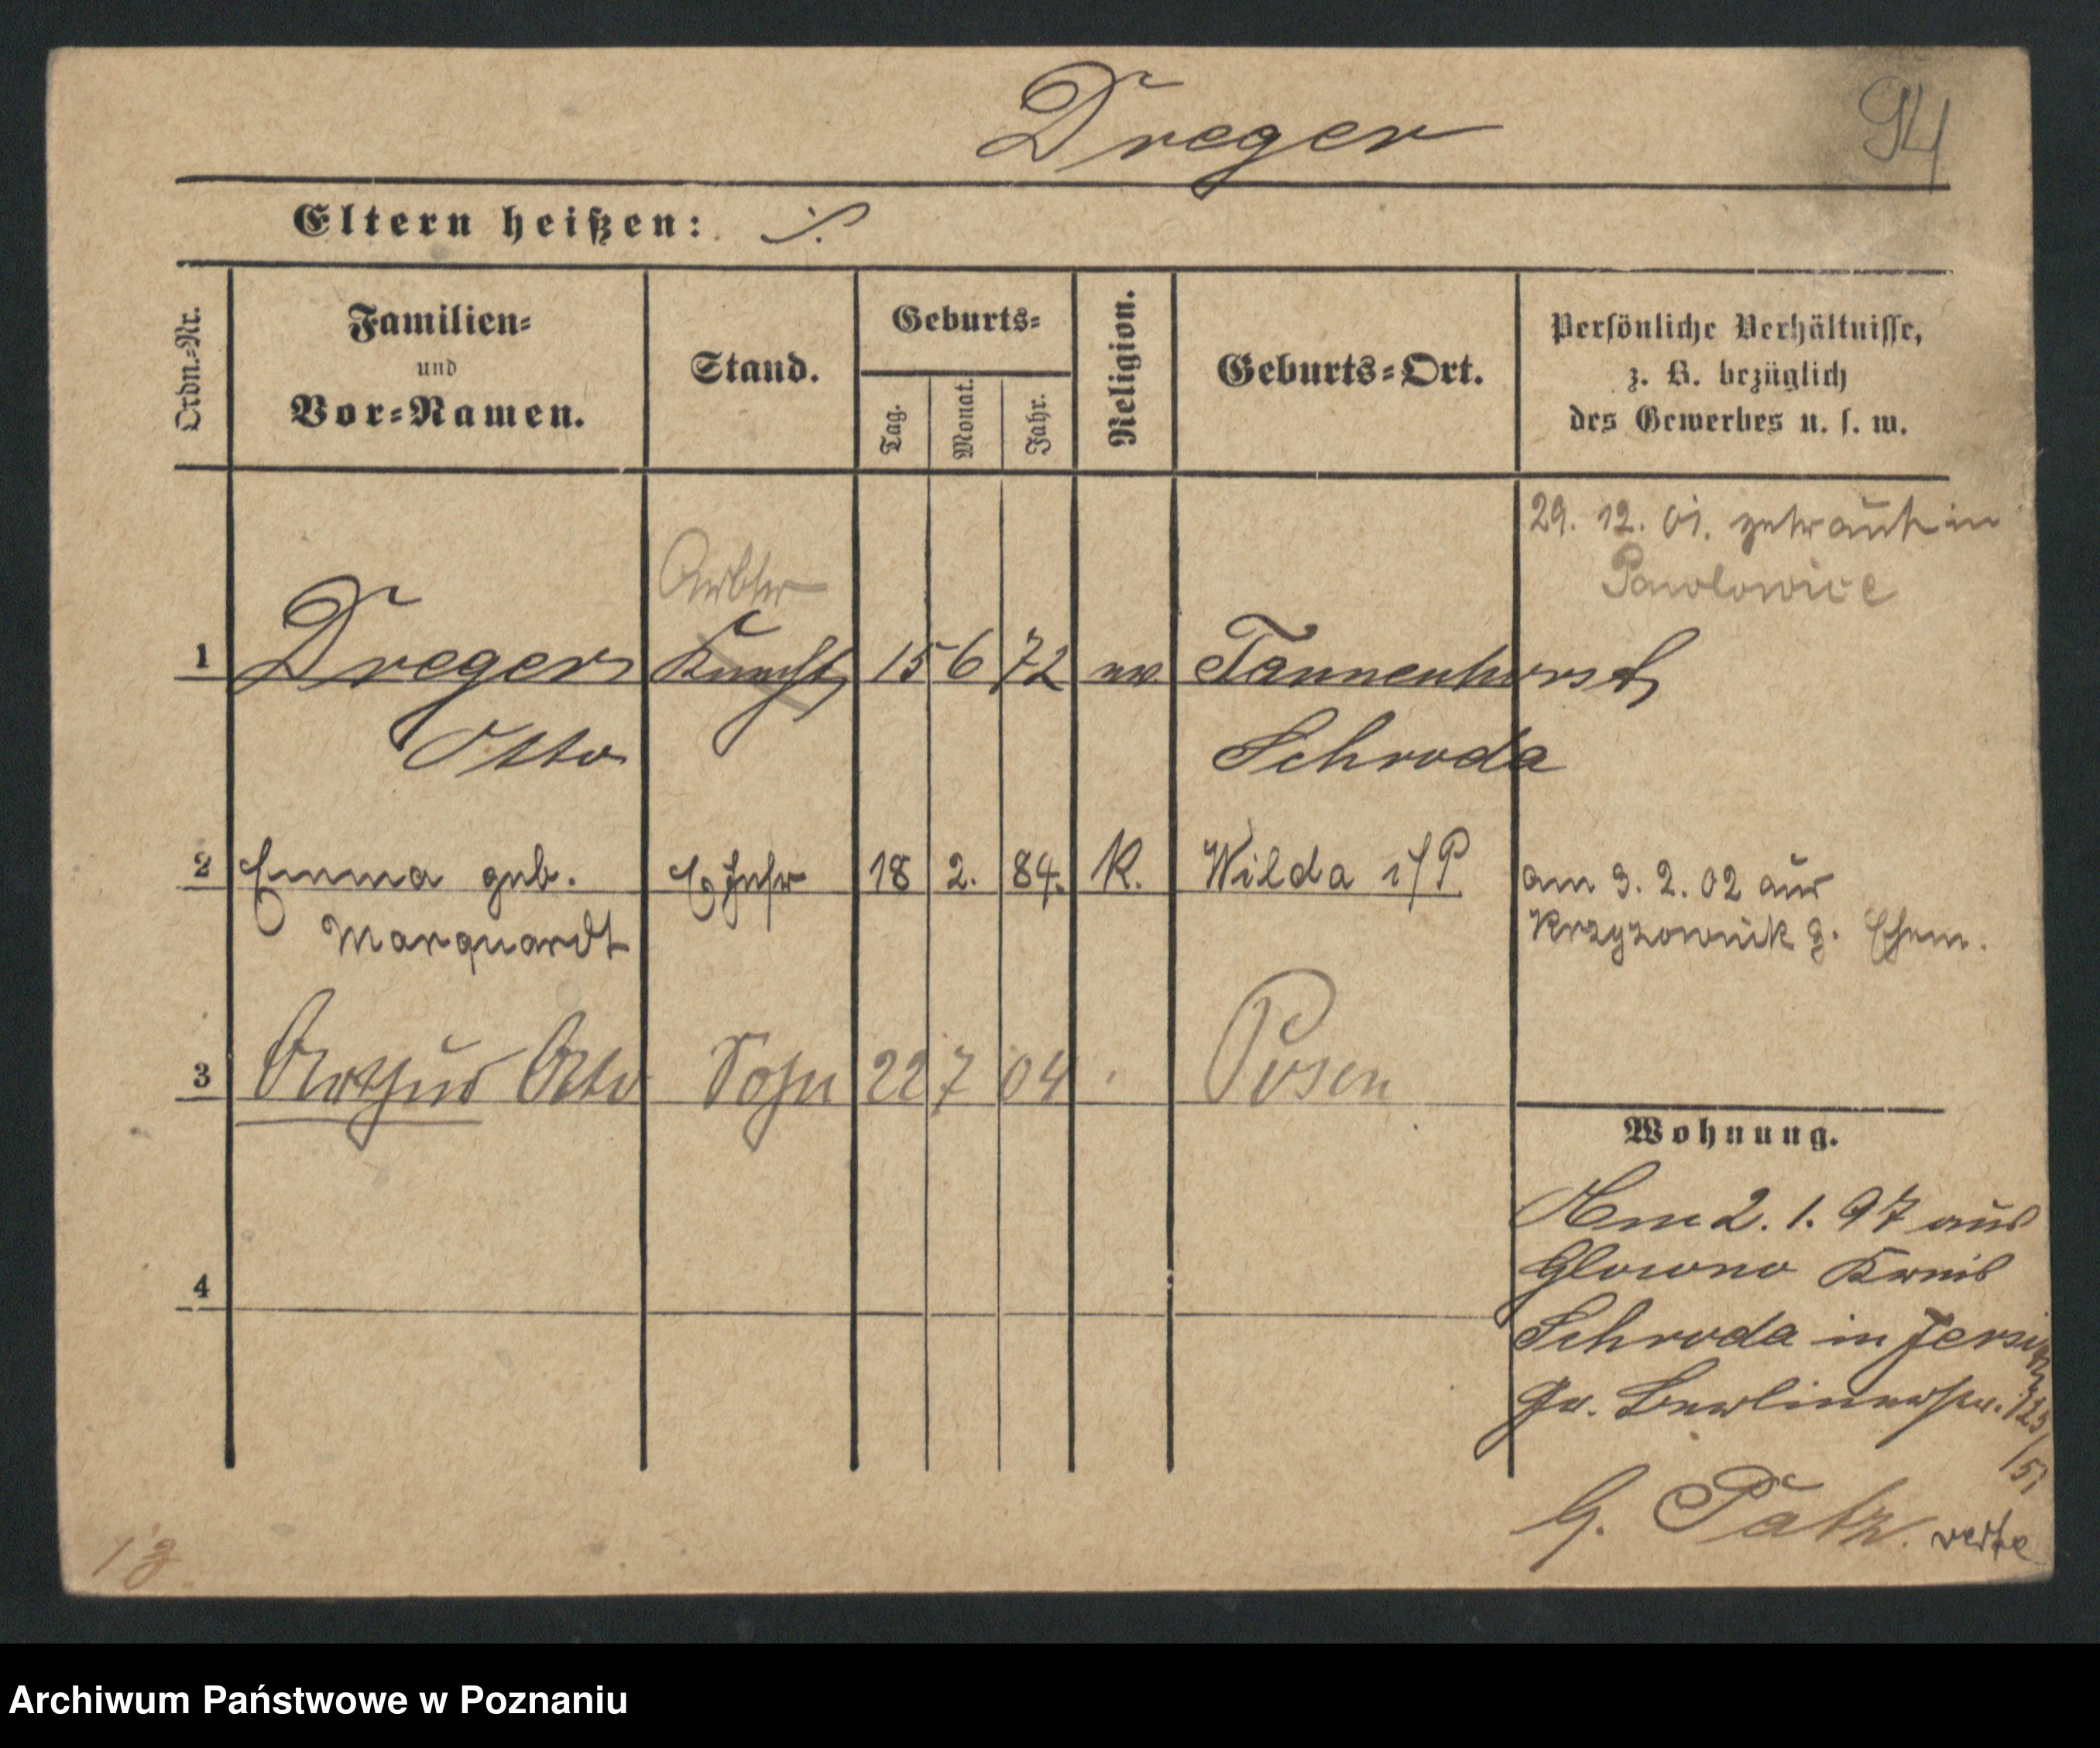 Dreger
94
Eltern heißen: ./.
Ordn.-Nr.
Familien-
und
Vor-Namen.
Stand.
Geburts-
Tag.
Monat.
Jahr.
Religion.
Geburts-Ort.
Persönliche Verhältnisse,
z. B. bezüglich
des Gewerbes u. s. w.
29. 12. 01. getraut in
Pawlowice
Arbtr
1 Dreger Knecht 15 6 72 ev Tannenhorst
Otto Schroda
2 Emma geb. Efr 18 2. 84. K. Wilda i/P am 3. 2. 02 aus
Marquardt Krzyzownik z. Ehem.
3 Arthur Otto Sohn 22 7 04 Posen
Wohnung.
Am 2. 1. 97 aus
Glowno Kreis
4
Schroda in Jersitz
Gr. Berlinerstr. 125
/51
G. Pätz. verte